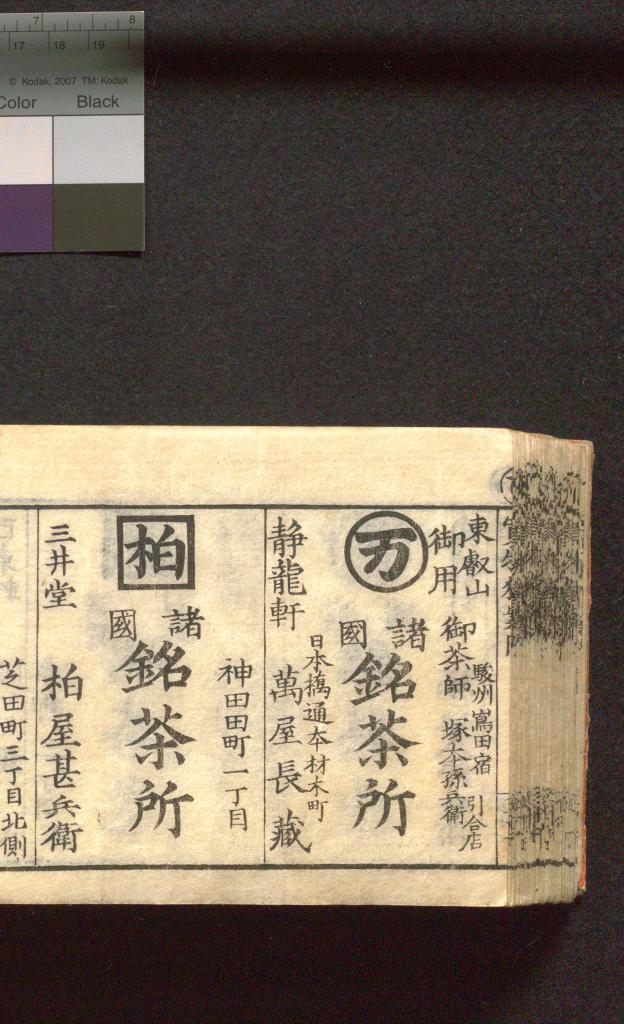 7 8
17 18 19
© Kodak, 2007 TM: Kodak
Color Black
東叡山
御用
御茶師
駿州嶌田宿
塚本孫兵衛
引合店
万
諸國
銘茶所
日本橋通本材木町
静龍軒 萬屋長藏
神田田町一丁目
柏
諸國
銘茶所
三井堂 柏屋甚兵衛
芝田町三丁目北側